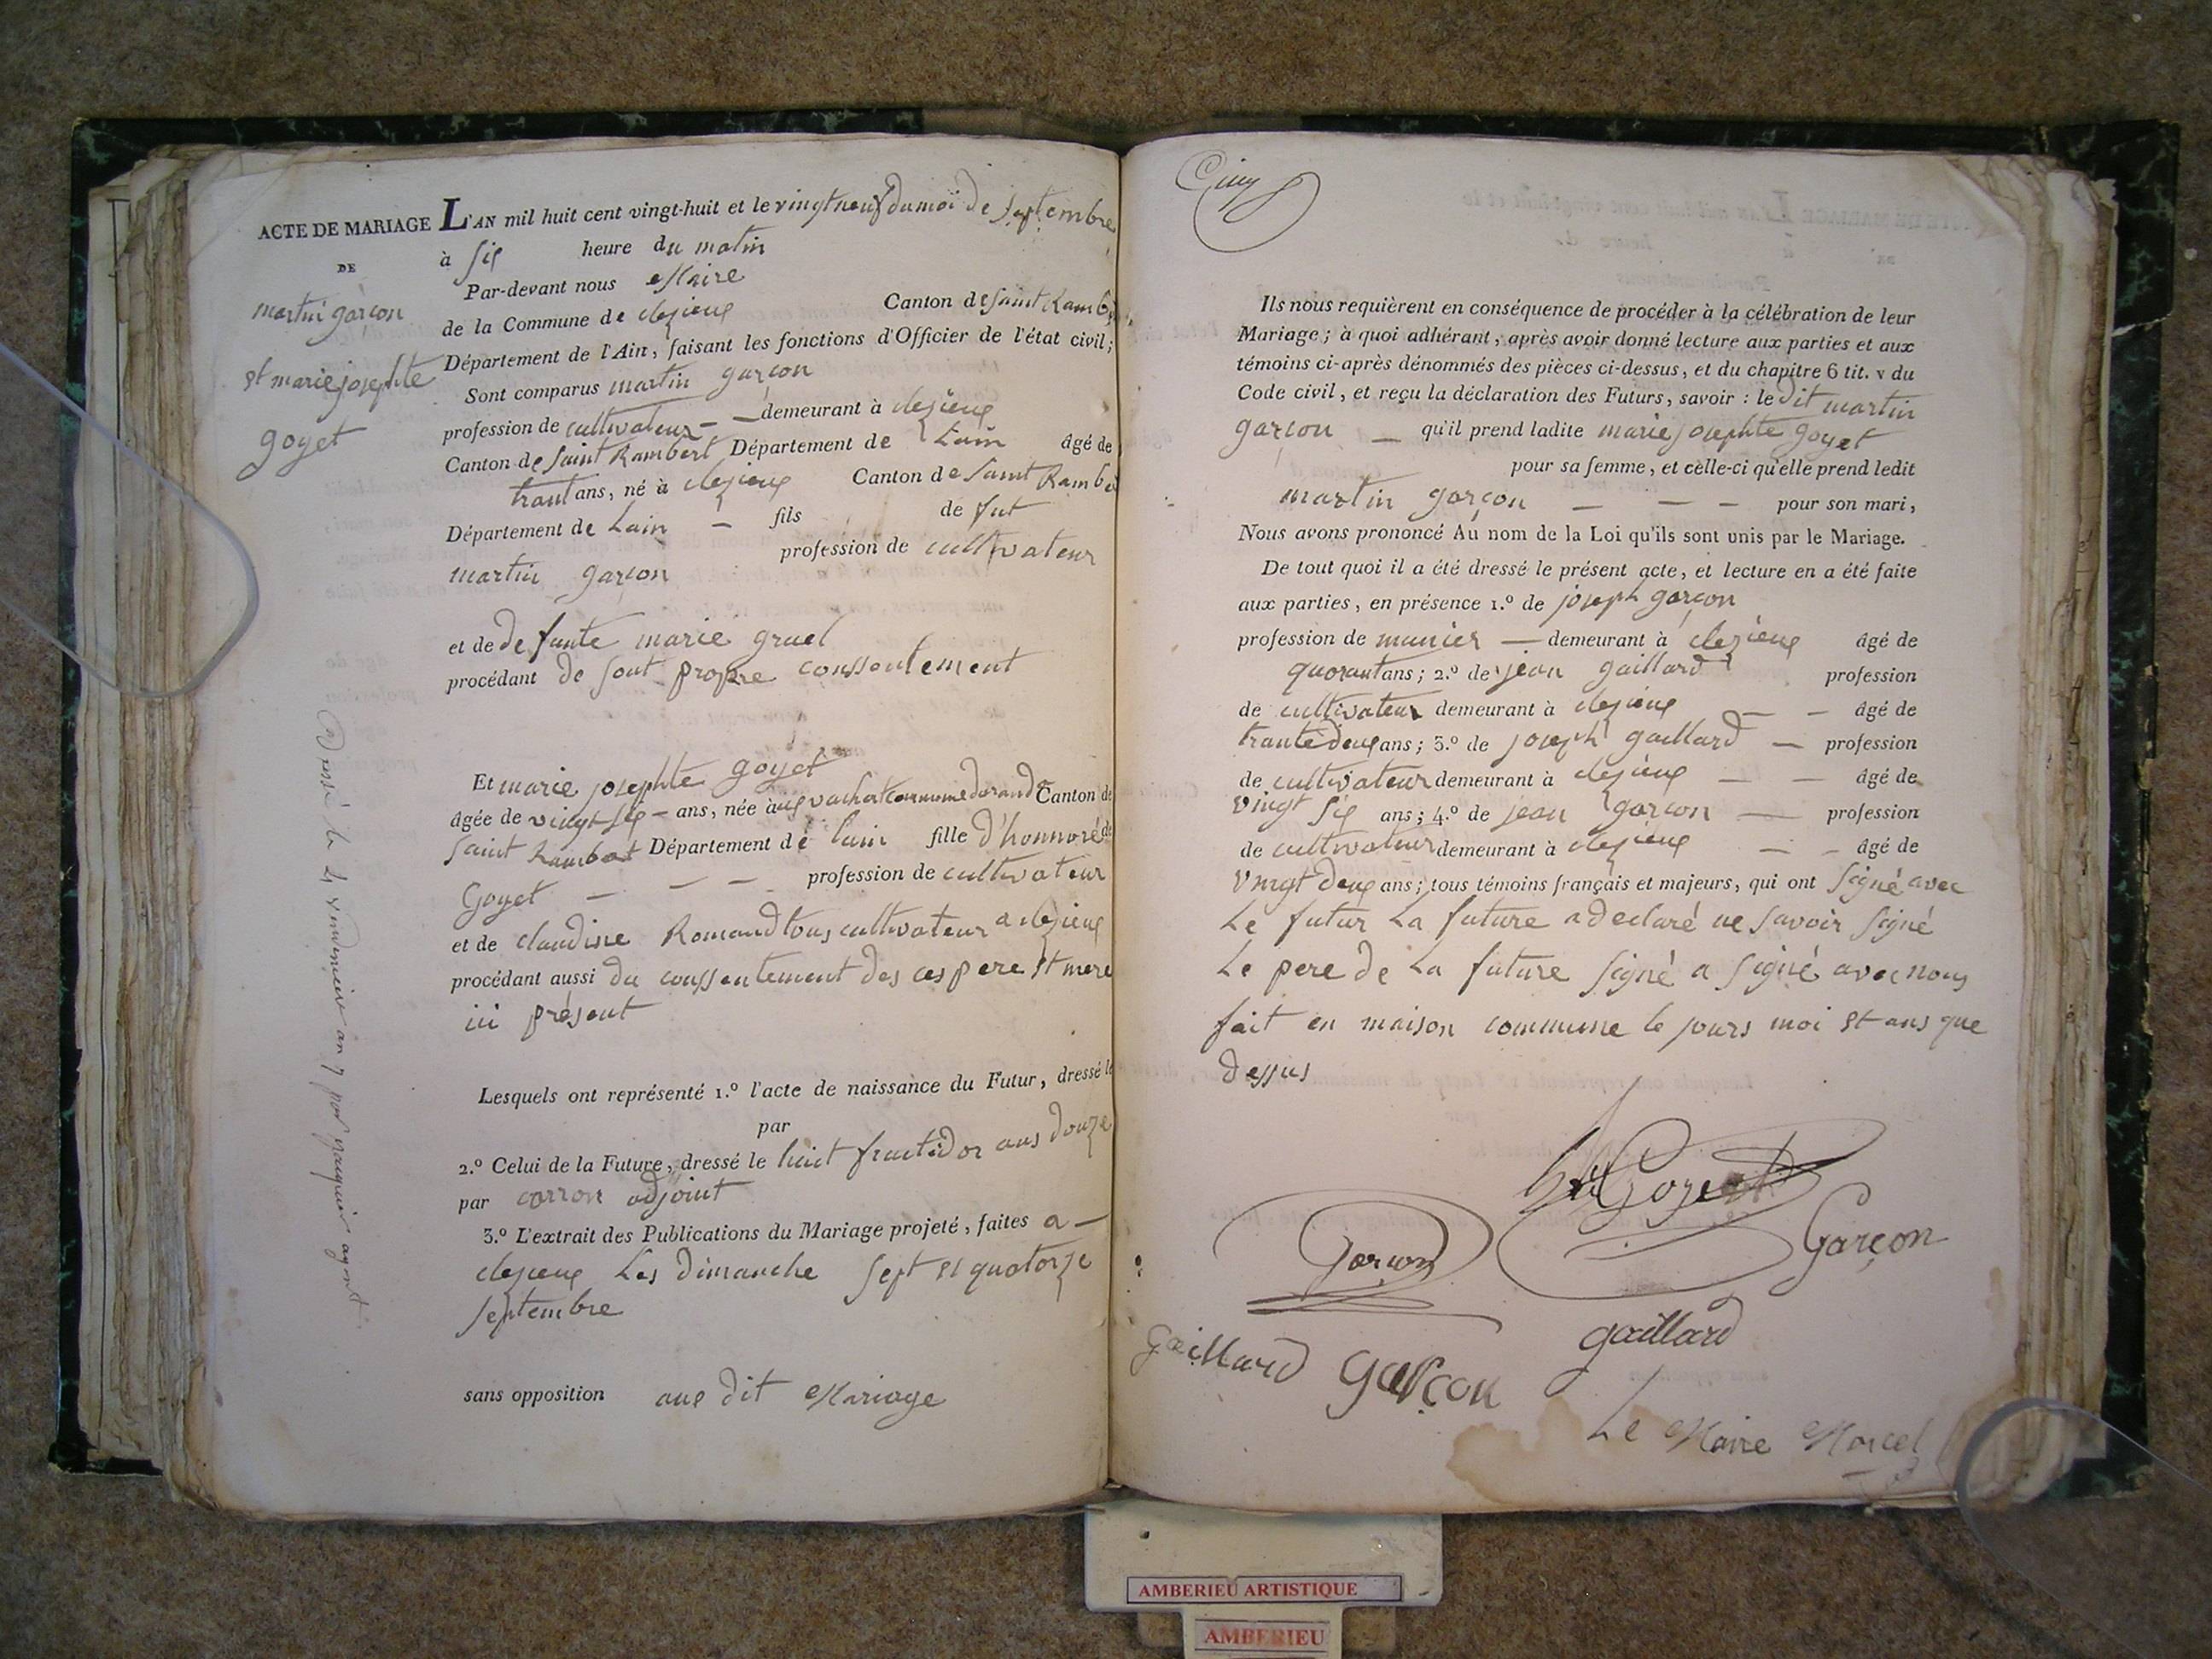 ACTE DE MARIAGE
DE
martin garçon
et marie josephte
goyet
L'AN mil huit cent vingt-huit et le vingt neuf du moi de septembre
à six heure du matin
Par-devant nous Maire
de la Commune de clezieux Canton de saint Ramb
Département de l'Ain, faisant les fonctions d'Officier de l'état civil;
Sont comparus martin garçon
profession de cultivateur demeurant à clezieux
Canton de saint Rambert Département de Lain âgé de
trant ans, né à clezieux Canton de saint Rambe
Département de Lain fils de fut
martin garçon profession de cultivateur
et de defunte marie gruel
procédant de sont propre conssentement
Et marie josephte goyet
âgée de vingt six ans, née à vachat commune durand Canton de
saint Rambert Département de lain fille d'honnoré
Goyet profession de cultivateur
et de claudine Romand tous cultivateur a clezieux
procédant aussi du conssentement des ces pere et mere
ici présent
Lesquels ont représenté 1.º l'acte de naissance du Futur, dressé le
par
2.º Celui de la Future, dressé le huit fructidor ans douze
par carron adjoint
3.º L'extrait des Publications du Mariage projeté, faites a
clezieux Les dimanche sept et quatorze
septembre
sans opposition aux dit Mariage
dressé le 21 vendemiere an 7 par agent
Cinq
Ils nous requièrent en conséquence de procéder à la célébration de leur
Mariage; à quoi adhérant, après avoir donné lecture aux parties et aux
témoins ci-après dénommés des pièces ci-dessus, et du chapitre 6 tit. v du
Code civil, et reçu la déclaration des Futurs, savoir : le dit martin
garçon qu'il prend ladite marie josephte goyet
pour sa femme, et celle-ci qu'elle prend ledit
martin garçon pour son mari,
Nous avons prononcé Au nom de la Loi qu'ils sont unis par le Mariage.
De tout quoi il a été dressé le présent acte, et lecture en a été faite
aux parties, en présence 1.º de joseph garçon
profession de munier demeurant à clezieux âgé de
quorant ans; 2.º de jean gaillard profession
de cultivateur demeurant à clezieux âgé de
trante deux ans; 3.º de joseph gaillard profession
de cultivateur demeurant à clezieux âgé de
vingt six ans; 4.º de jean garçon profession
de cultivateur demeurant à clezieux âgé de
vingt deux ans; tous témoins français et majeurs, qui ont signé avec
Le futur La future a declaré ne savoir signé
Le pere de La future signé a signé avec nous
fait en maison commune le jours moi et ans que
dessus
Goyet
Garçon
Garçon
Gaillard
garçon
gaillard
Le Maire Marcel
AMBERIEU ARTISTIQUE
AMBERIEU